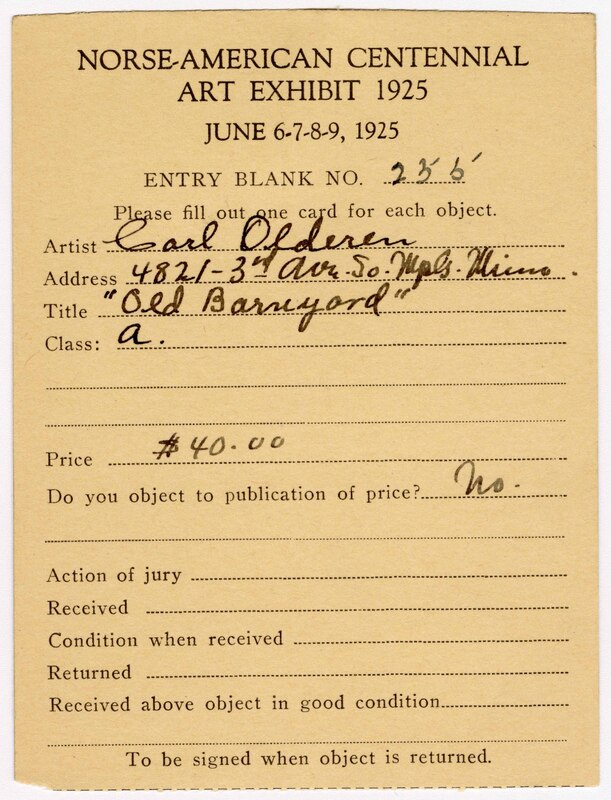 NORSE-AMERICAN CENTENNIAL
ART EXHIBIT 1925
JUNE 6-7-8-9, 1925
ENTRY BLANK NO. 255
Please fill out one card for each object.
Artist Carl Olderen
Address 4821-3rd Ave. So. Mpls. Minn.
Title "Old Barnyard"
Class: a.
Price $40.00
Do you object to publication of price? No.
Action of jury
Received
Condition when received
Returned
Received above object in good condition
To be signed when object is returned.